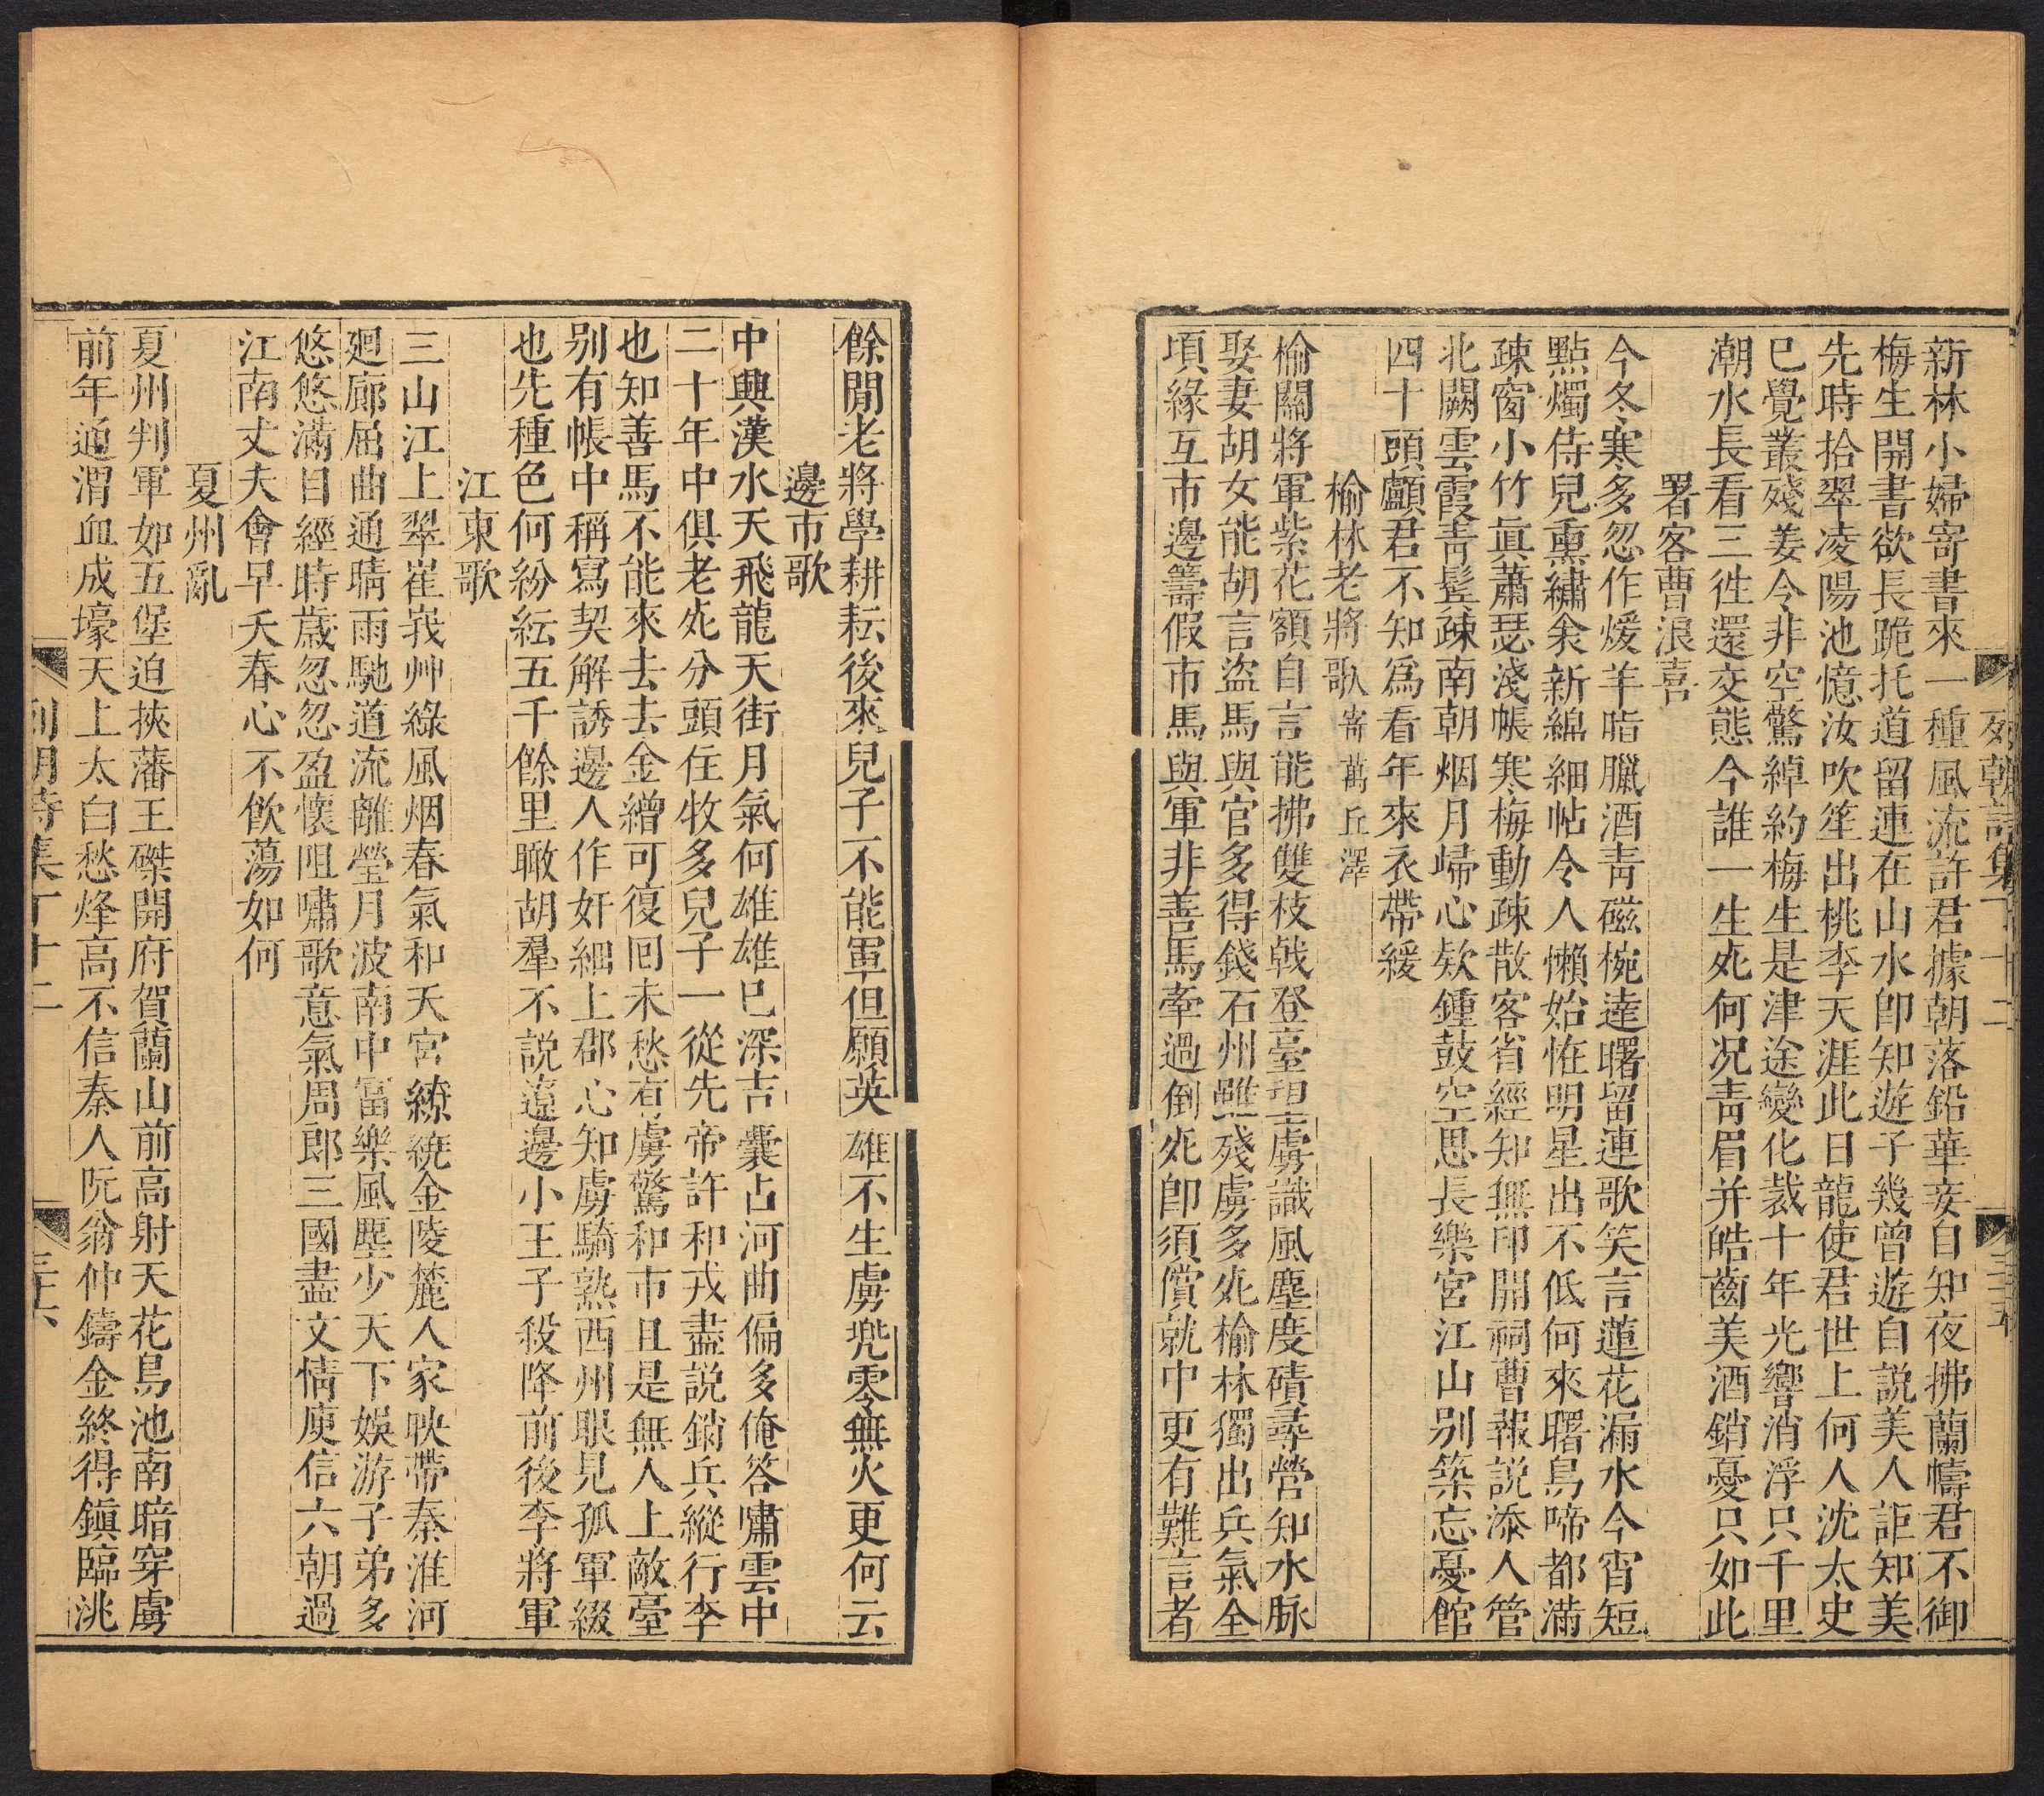 列朝詩集丁十二
三十五
新林小婦寄書來一種風流許君據朝落鉛華妾自知夜拂蘭幬君不御
梅生開書欲長跪托道留連在山水卽知遊子幾曾遊自説美人詎知美
先時拾翠凌陽池憶汝吹笙出桃李天涯此日龍使君世上何人沈太史
已覺叢殘姜今非空驚綽約梅生是津途變化裁十年光響消浮只千里
潮水長看三徃還交態今誰一生死何况靑眉并皓齒美酒銷憂只如此
署客曹浪喜
今冬寒多忽作煖羊脂臘酒靑磁椀達曙留連歌笑言蓮花漏水今宵短
點燭侍兒熏繡衾新綿細帖令人懶始恠明星出不低何來曙鳥啼都滿
疎窗小竹眞蕭瑟淺帳寒梅動疎散客省經知無印開祠曹報説添人管
北闕雲霞靑鬢疎南朝烟月歸心欵鍾鼓空思長樂宮江山别築忘憂館
四十頭顱君不知爲看年來衣帶緩
榆林老將歌寄萬丘澤
榆關將軍紫花額自言能拂雙枝戟登臺望虜識風塵度磧尋營知水脉
娶妻胡女能胡言盜馬與官多得錢石州雖殘虜多死榆林獨出兵氣全
頃緣互市邊籌假市馬與軍非善馬牽過倒死卽須償就中更有難言者
餘閒老將學耕耘後來兒子不能軍但願英雄不生虜兠零無火更何云
邊市歌
中興漢水天飛龍天街月氣何雄雄已深吉囊占河曲偏多俺答嘯雲中
二十年中俱老死分頭住牧多兒子一從先帝許和戎盡説銷兵縱行李
也知善馬不能來去去金繒可復回未愁有虜驚和市且是無人上敵臺
别有帳中稱寫契解誘邊人作奸細上郡心知虜騎熟西州眼見孤軍綴
也先種色何紛紜五千餘里瞰胡羣不説遼邊小王子殺降前後李將軍
江東歌
三山江上翠崔峩艸綠風烟春氣和天宮繚繞金陵麓人家映帶秦淮河
廻廊屈曲通晴雨馳道流離瑩月波南中富樂風塵少天下娛游子弟多
悠悠滿目經時歲忽忽盈懷阻嘯歌意氣周郎三國盡文情庾信六朝過
江南丈夫會早夭春心不飮蕩如何
夏州亂
夏州判軍如五堡迫挾藩王磔開府賀蘭山前高射天花馬池南暗穿虜
前年通渭血成壕天上太白愁烽高不信秦人阮翁仲鑄金終得鎭臨洮
列朝詩集丁十二
三十六